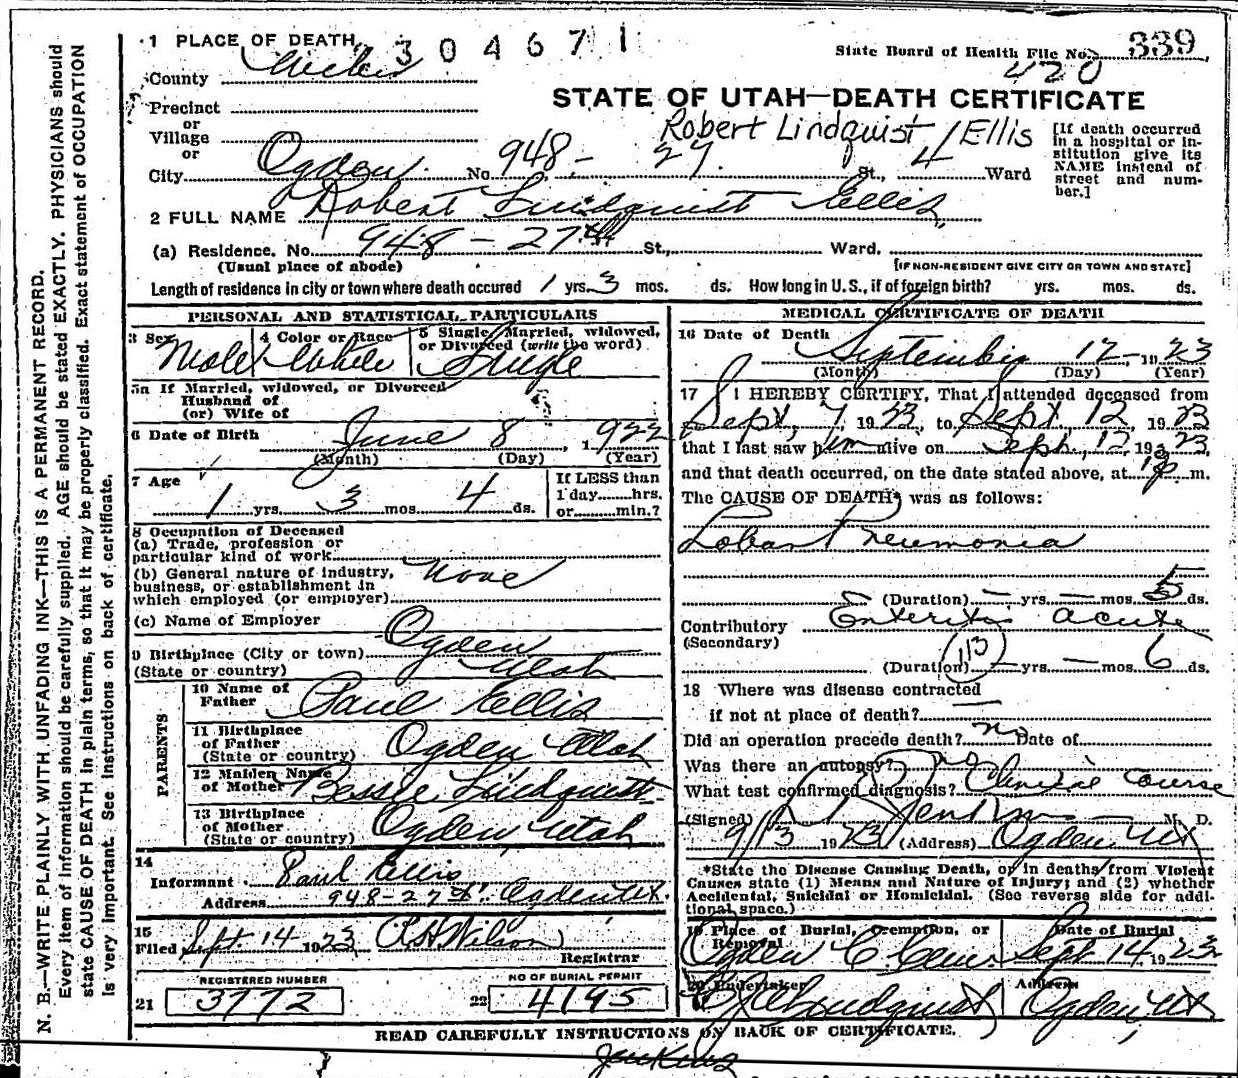 N. B.—WRITE PLAINLY WITH UNFADING INK—THIS IS A PERMANENT RECORD.
Every item of information should be carefully supplied. AGE should be stated EXACTLY. PHYSICIANS should
state CAUSE OF DEATH in plain terms, so that it may be properly classified. Exact statement of OCCUPATION
is very important. See instructions on back of certificate.
1 PLACE OF DEATH
304671
State Board of Health File No. 339
420
County Weber
Precinct
or
Village
or
STATE OF UTAH—DEATH CERTIFICATE
Robert Lindquist / Ellis
[If death occurred
in a hospital or in-
stitution give its
NAME instead of
street and num-
ber.]
City Ogden No. 948- 27 St., 4 Ward
2 FULL NAME Robert Lindquist Ellis
(a) Residence. No. 948-27th St., Ward.
(Usual place of abode)
[IF NON-RESIDENT GIVE CITY OR TOWN AND STATE]
Length of residence in city or town where death occured 1 yrs. 3 mos. ds. How long in U.S., if of foreign birth? yrs. mos. ds.
PERSONAL AND STATISTICAL PARTICULARS
3 Sex Male
4 Color or Race White
5 Single, Married, widowed,
or Divorced (write the word) Single
5a If Married, widowed, or Divorced
Husband of
(or) Wife of
6 Date of Birth June 8, 1922
(Month) (Day) (Year)
7 Age 1 yrs. 3 mos. 4 ds.
If LESS than
1 day hrs.
or min.?
8 Occupation of Deceased
(a) Trade, profession or
particular kind of work
(b) General nature of industry, none
business, or establishment in
which employed (or employer)
(c) Name of Employer
9 Birthplace (City or town) Ogden
(State or country) Utah
PARENTS
10 Name of
Father Paul Ellis
11 Birthplace
of Father Ogden Utah
(State or country)
12 Maiden Name
of Mother Bessie Lindquist
13 Birthplace
of Mother Ogden Utah
(State or country)
14
Informant Paul Ellis
Address 948-27th Ogden Ut.
15
Filed Sept 14 1923 R H Wilson
Registrar
REGISTERED NUMBER
21 3772
NO OF BURIAL PERMIT
22 4195
MEDICAL CERTIFICATE OF DEATH
16 Date of Death
September 12, 1923
(Month) (Day) (Year)
17 I HEREBY CERTIFY, That I attended deceased from
Sept, 7 1923, to Sept. 12, 1923
that I last saw him alive on Sept. 12, 1923,
and that death occurred, on the date stated above, at p m.
The CAUSE OF DEATH* was as follows:
Lobar Pneumonia
(Duration) — yrs. — mos. 5 ds.
Contributory Enteritis acute
(Secondary)
113
(Duration) — yrs. — mos. 6 ds.
18 Where was disease contracted
if not at place of death? —
Did an operation precede death? no Date of
Was there an autopsy? no
What test confirmed diagnosis? Clinical Course
(Signed) M. D.
9/13 1923 (Address) Ogden Ut
*State the Disease Causing Death, or in deaths from Violent
Causes state (1) Means and Nature of Injury; and (2) whether
Accidental, Suicidal or Homicidal. (See reverse side for addi-
tional space.)
19 Place of Burial, Cremation, or
Removal
Date of Burial
Ogden C Cem. Sept 14 1923
20 Undertaker
Address
Lindquist, Ogden, Ut
READ CAREFULLY INSTRUCTIONS ON BACK OF CERTIFICATE.
Jenkins